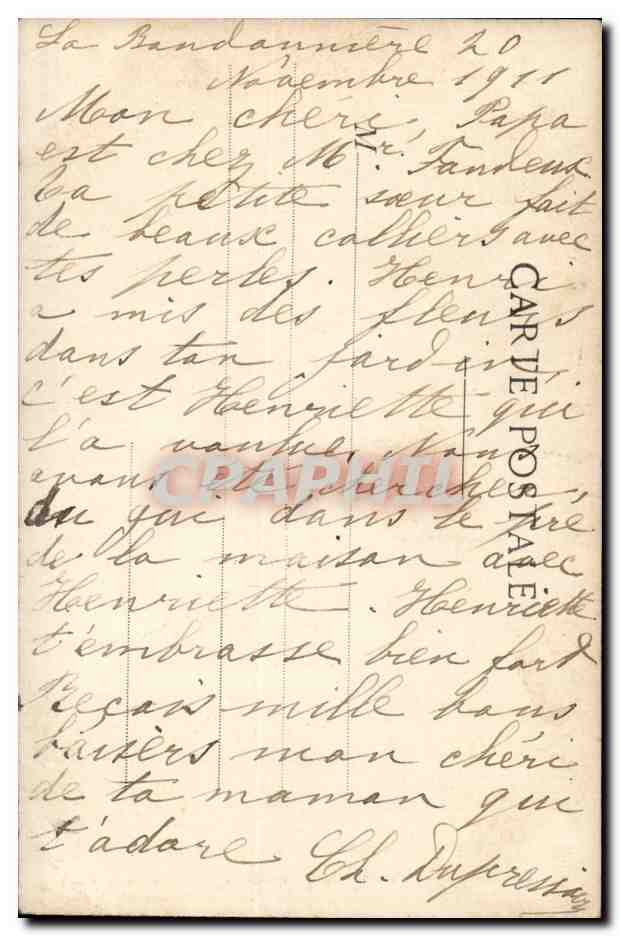 La Bandonnière 20
Novembre 1911
Mon chéri, Papa
est chez Mr. Fandeux
La petite sœur fait
de beaux colliers avec
tes perles. Henri
a mis des fleurs
dans ton jardin,
c'est Henriette qui
l'a voulue, Nous
avons été chercher,
du gui dans le pré
de la maison avec
Henriette. Henriette
t'embrasse bien ford
Reçois mille bons
baisers mon chéri
de ta maman qui
t'adore Ch. Dupressoir
M
CARTE POSTALE
CPAPHIL